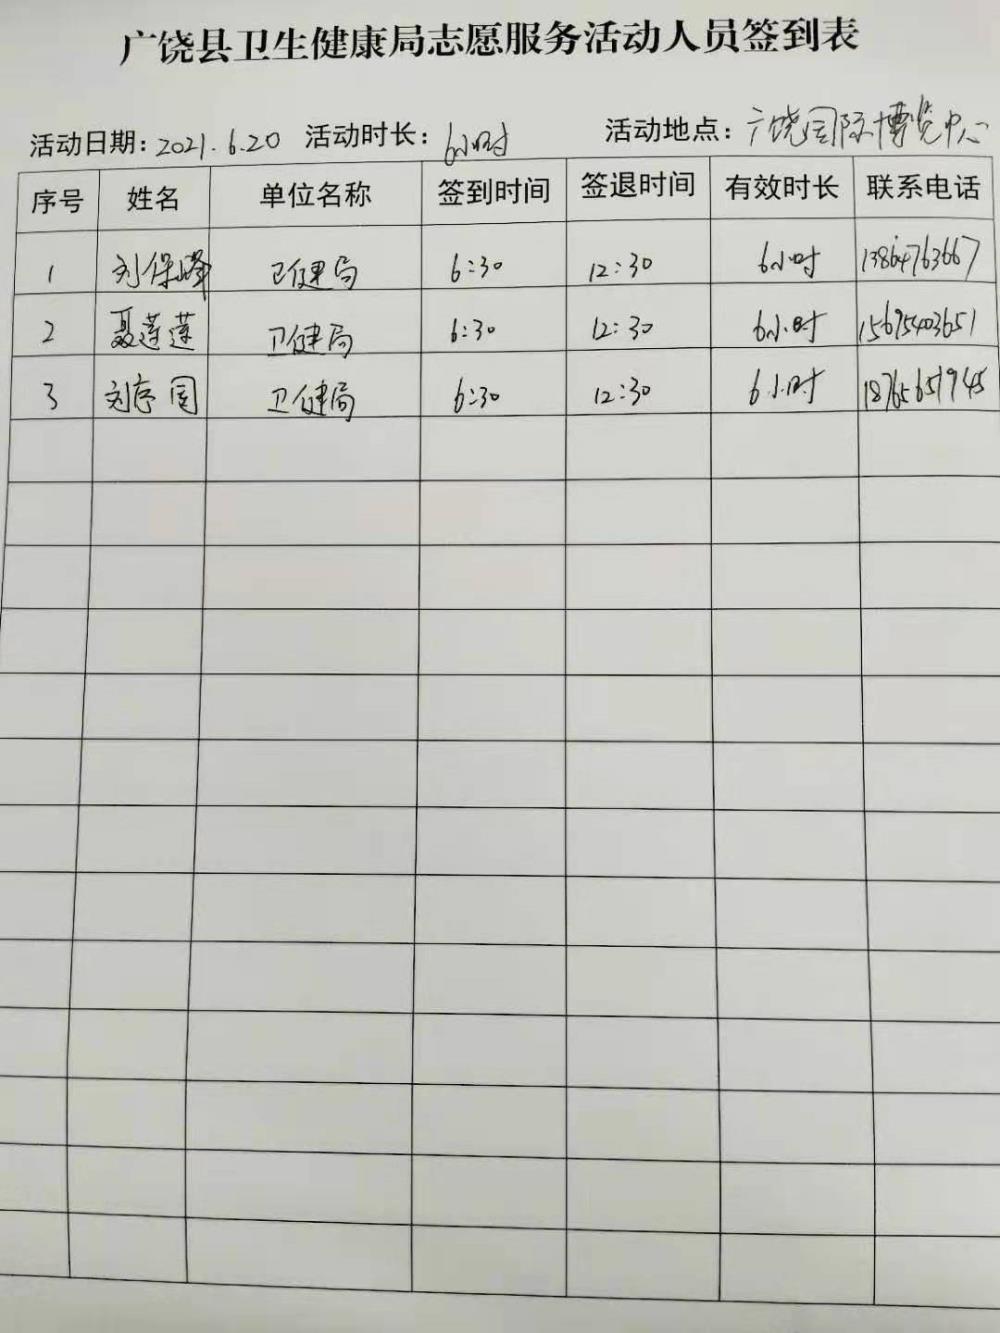 广饶县卫生健康局志愿服务活动人员签到表
活动日期：2021.6.20 活动时长：6小时 活动地点：广饶国际博览中心
序号 姓名 单位名称 签到时间 签退时间 有效时长 联系电话
1 刘保峰 卫健局 6:30 12:30 6小时 13864763667
2 聂莲莲 卫健局 6:30 12:30 6小时 15695403651
3 刘志国 卫健局 6:30 12:30 6小时 18765651945